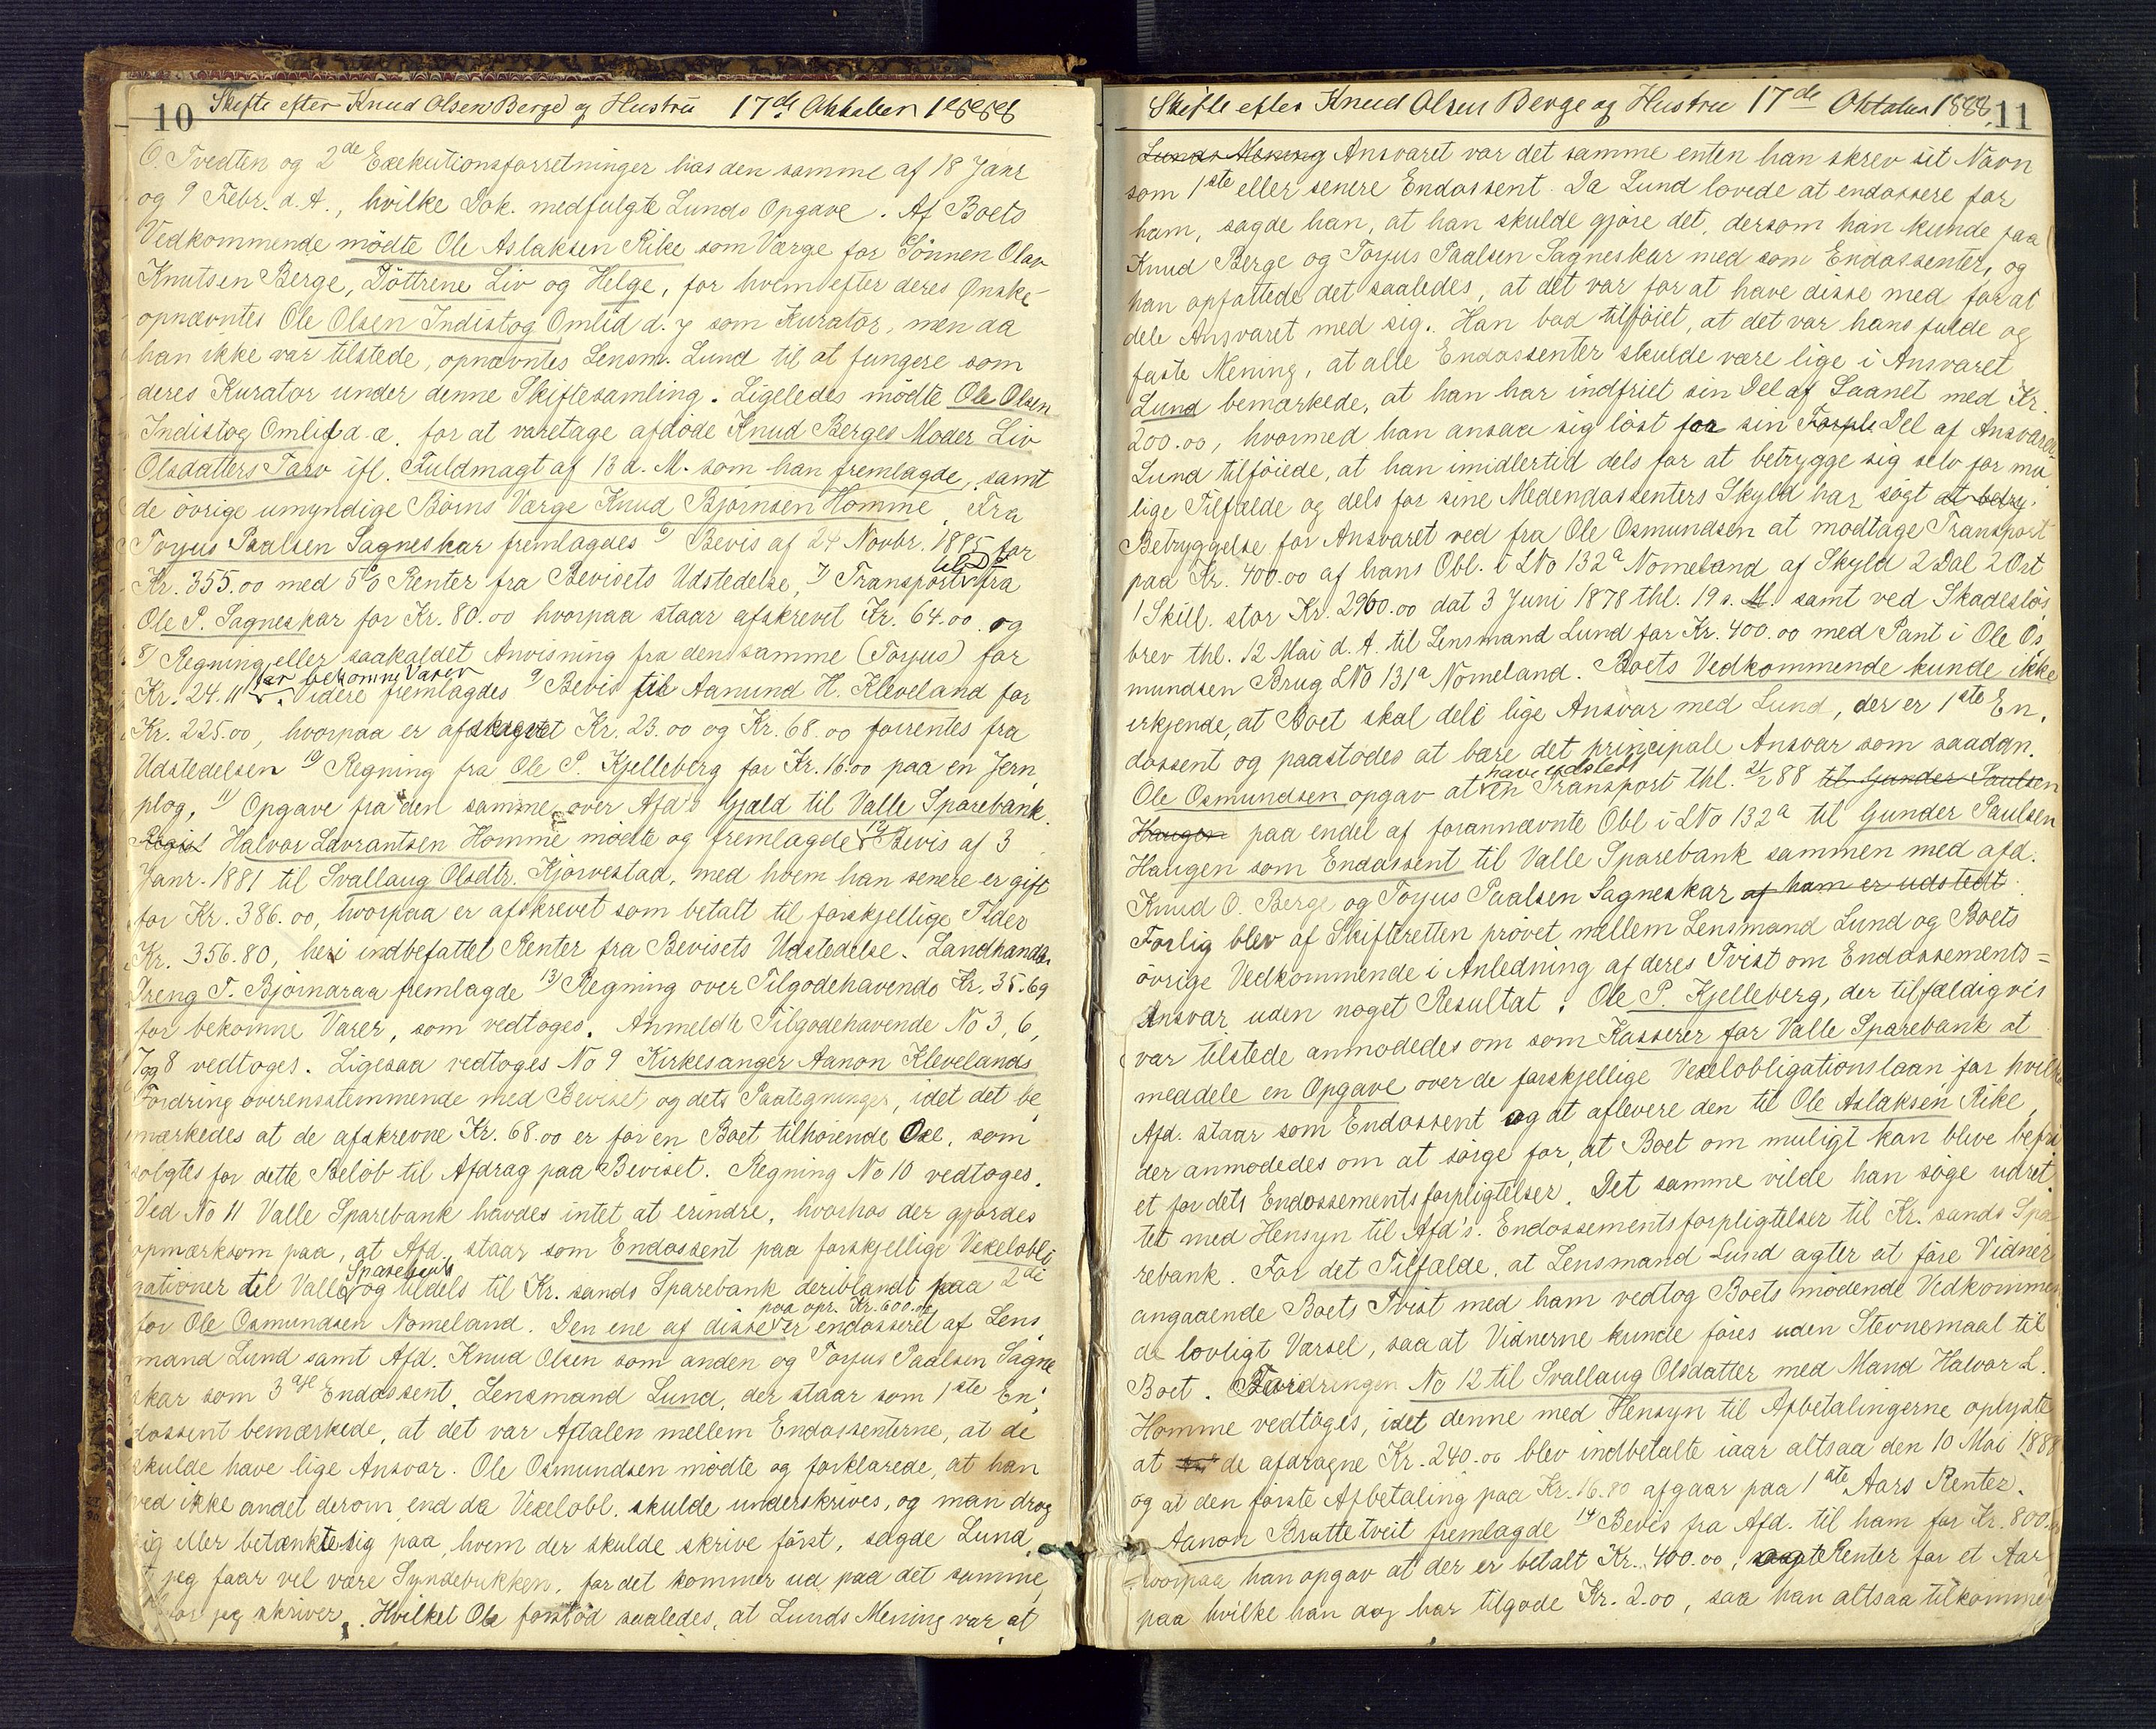 10 Skifte efter Knud Olsen Berge og Hustru 17de Oktober 1888
O. Tvedten og 2de Exekutionsforretninger hos den samme af 18 Janr
og 9 Febr. d. A., hvilke Dok. medfulgte Lunds Opgave. Af Boets
Vedkommende mödte Ole Aslaksen Rike som Værge for Sönnen Olav
Knutsen Berge, Döttrene Liv og Helge, for hvem efter deres Ønske
opnævntes Ole Olsen Indistog Omlid d. y som Kurator, men da
han ikke var tilstede, opnævntes Lensm. Lund til at fungere som
deres Kurator under denne Skiftesamling. Ligeledes mödte Ole Olsen
Indistog Omlid d. æ. for at varetage afdöde Knud Berges Moder Liv
Olsdatters Tarv ifl. Fuldmagt af 13 d. M. som han fremlagde, samt
de övrige umyndige Börns Værge Knud Björnsen Homme. Fra
Torjus Paalsen Sagneskar fremlagdes 6) Bevis af 24 Novbr. 1885 for
Kr. 355.00 med 5% Renter fra Bevisets Udstedelse, 7) Transport fra
Ole P. Sagneskar for Kr. 80.00 hvorpaa staar afskrevet Kr. 64.00 og
8) Regning eller saakaldet Anvisning fra den samme (Torjus) for
Kr. 24.11 for bekomne Varer. Videre fremlagdes 9) Bevis til Aamund H. Kleveland for
Kr. 225.00, hvorpaa er afskrevet Kr. 23.00 og Kr. 68.00 forrentes fra
Udstedelsen 10) Regning fra Ole P. Kjelleberg for Kr. 16.00 paa en Jern
plog, 11) Opgave fra den samme over Afd's Gjæld til Valle Sparebank.
Halvor Lavrantsen Homme mödte og fremlagde 12) Bevis af 3
Janr. 1881 til Svallaug Olsdtr. Kjörvestad, med hvem han senere er gift
for Kr. 386.00, hvorpaa er afskrevet som betalt til forskjellige Tider
Kr. 356.80, heri indbefattet Renter fra Bevisets Udstedelse. Landhandler
Dreng T. Björnaraa fremlagde 13) Regning over Tilgodehavende Kr. 35.69
for bekomne Varer, som vedtoges. Anmeldte Tilgodehavende No 3, 6,
7 og 8 vedtoges. Ligesaa vedtoges No 9 Kirkesanger Aanon Klevelands
Fordring overensstemmende med Beviset og dets Paategninger, idet det be
mærkedes at de afskrevne Kr. 68.00 er for en Boet tilhörende Oxe, som
solgtes for dette Belöb til Afdrag paa Beviset. Regning No 10 vedtoges.
Ved No 11 Valle Sparebank havdes intet at erindre, hvorhos der gjordes
opmærksom paa, at Afd. staar som Endossent paa forskjellige Vexelobli
gationer til Valle Sparebank og tildels til Kr. sands Sparebank deriblandt paa 2de
for Ole Osmundsen Nomeland. Den ene af disse paa opr. Kr. 600.00 er endosseret af Lens
mand Lund samt Afd. Knud Olsen som anden og Torjus Paalsen Sagne
skar som 3die Endossent. Lensmand Lund, der staar som 1ste En
dossent bemærkede, at det var Aftalen mellem Endossenterne, at de
skulde have lige Ansvar. Ole Osmundsen mödte og forklarede, at han
ved ikke andet derom, end da Vexelobl. skulde underskrives, og man drog
sig eller betænkte sig paa, hvem der skulde skrive först, sagde Lund,
jeg faar vel være Syndebukken, for det kommer ud paa det samme,
hvor jeg skriver. Hvilket Ole forstod saaledes, at Lunds Mening var at
Skifte efter Knud Olsen Berge og Hustru 17de Oktober 1888. 11
Lunds Mening Ansvaret var det samme enten han skrev sit Navn
som 1ste eller senere Endossent. Da Lund lovede at endossere for
ham, sagde han, at han skulde gjöre det, dersom han kunde faa
Knud Berge og Torjus Paalsen Sagneskar med som Endossenter, og
han opfattede det saaledes, at det var for at have disse med for at
dele Ansvaret med sig. Han bad tilföiet, at det var hans fulde og
faste Mening, at alle Endossenter skulde være lige i Ansvaret
Lund bemærkede, at han har indfriet sin Del af Laanet med Kr.
200.00, hvormed han ansaa sig löst for sin Del af Ansvaret
Lund tilföiede, at han imidlertid dels for at betrygge sig selv for mu
lige Tilfælde og dels for sine Medendossenters Skyld har sögt at betry
Betryggelse for Ansvaret ved fra Ole Osmundsen at modtage Transport
paa Kr. 400.00 af hans Obl. i LNo 132a Nomeland af Skyld 2 Dal 2 Ort
1 Skill. stor Kr. 2960.00 dat 3 Juni 1878 thl. 19 s. M. samt ved Skadeslös
brev thl. 12 Mai d. A. til Lensmand Lund for Kr. 400.00 med Pant i Ole Os
mundsen Brug LNo 131a Nomeland. Boets Vedkommende kunde ikke
erkjende, at Boet skal dele lige Ansvar med Lund, der er 1ste En
dossent og paastodes at bære det principale Ansvar som saadan.
Ole Osmundsen opgav at have udstedt en Transport thl. 21/2 88 til Gunder Paulsen
Haugen paa endel af forannævnte Obl i LNo 132a til Gunder Paulsen
Haugen som Endossent til Valle Sparebank sammen med afd.
Knud O. Berge og Torjus Paalsen Sagneskar af ham er udstedt.
Forlig blev af Skifteretten prövet mellem Lensmand Lund og Boets
övrige Vedkommende i Anledning af deres Tvist om Endossements=
Ansvar uden noget Resultat. Ole P. Kjelleberg, der tilfældigvis
var tilstede anmodedes om som Kasserer for Valle Sparebank at
meddele en Opgave over de forskjellige Vexelobligationslaan for hvilke
Afd. staar som Endossent og at aflevere den til Ole Aslaksen Rike,
der anmodedes om at sörge for, at Boet om muligt kan blive befri
et for dets Endossementsforpligtelser. Det samme vilde han söge udret
tet med Hensyn til Afd's. Endossementsforpligtelser til Kr. sands Spa
rebank. For det Tilfælde, at Lensmand Lund agter at före Vidner
angaaende Boets Tvist med ham vedtog Boets mödende Vedkommen
de lovligt Varsel, saa at Vidnerne kunde föres uden Stevnemaal til
Boet. Fordringen No 12 til Svallaug Olsdatter med Mand Halvor L.
Homme vedtoges, idet denne med Hensyn til Afbetalingerne oplyste
at de afdragne Kr. 240.00 blev indbetalte iaar altsaa den 10 Mai 1888
og at den förste Afbetaling paa Kr. 16.80 afgaar paa 1ste Aars Renter.
Aanon Brottetveit fremlagde 14) Bevis fra Afd. til ham for Kr. 800.00
hvorpaa han opgav at der er betalt Kr. 400.00, Renter for et Aar
paa hvilke han dog har tilgode Kr. 2.00, saa han altsaa tilkommer